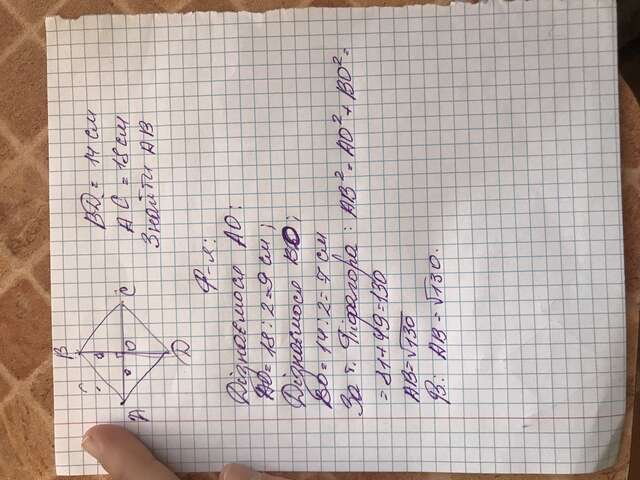 B
A
C
D
O
BD = 14 см
AC = 18 см
Знайти AB
Р-я:
Дізнаємося AO:
AO = 18 : 2 = 9 см;
Дізнаємося BO:
BO = 14 : 2 = 7 см
За т. Піфагора: AB² = AO² + BO² =
= 81 + 49 = 130
AB = √130
В: AB = √130.